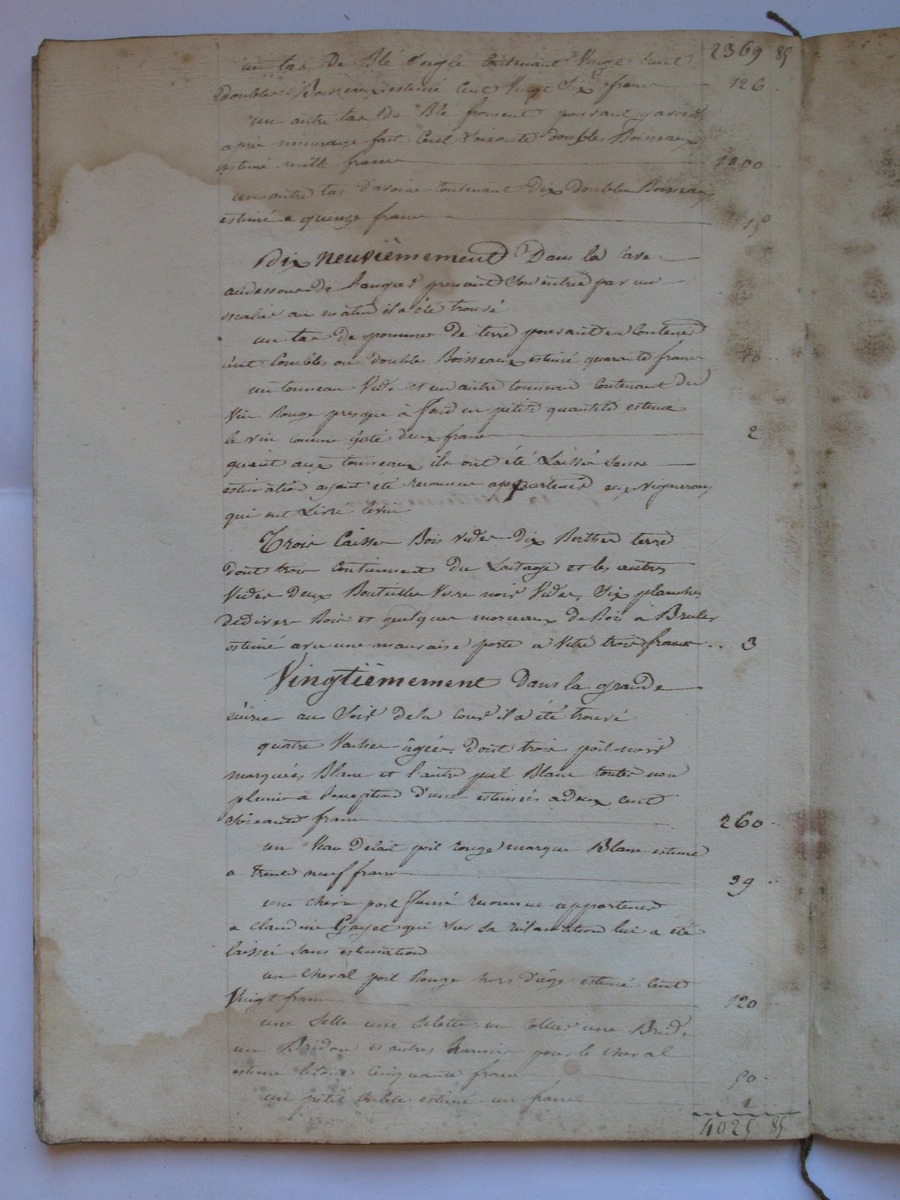 2369 85
un tas de Blé Seigle contenant Vingt huit
doubles Boisseaux estimé Cent Vingt Six francs 126
un autre tas de Blé froment pouvant y avoir
après mesurage fait Cent Soixante doubles Boisseaux
estimé mille francs 1000
un autre tas d'avoine contenant Dix doubles Boisseaux
estimé a quinze francs 15
Dix neuvièmement Dans la Cave
audessous de prenant Son entrée par un
escalier au matin il a été trouvé
un tas de pommes de terre pouvant en Contenir
Cent Combles ou doubles Boisseaux estimé quarante francs 40
un tonneau Vide et un autre tonneau Contenant du
Vin Rouge presque à fond en petite quantité estimé
le vin comme gaté deux francs 2
quant aux tonneaux ils ont été Laissé Sans
estimation ayant été reconnus appartenir au Vigneron
qui ont Livré le vin
Trois Caisses Bois Vides Dix Berthes terre
dont trois Contiennent du Laitage et les autres
Vides Deux Bouteilles Verre noir Vides, Six planches
de divers Bois et quelques morceaux de Bois à Bruler
estimé avec une mauvaise porte a Vitre trois francs 3
Vingtièmement Dans la grande
écurie au Soir de la Cour il a été trouvé
quatre Vaches âgées, dont trois poil noir
marquées Blanc et l'autre poil Blanc toutes non
pleines a l'exception d'une estimées a deux cent
Soixante francs 260
un Veau de lait poil rouge marqué Blanc estimé
a trente neuf francs 39
une chèvre poil fumé reconnue appartenir
a Claudine Gayet qui Sur Sa réclamation lui a été
laissée sans estimation
un Cheval poil Rouge hors d'âge estimé Cent
Vingt francs 120
une Selle une Sellette un Collier une Bride
un Bridon et autres harnois pour le cheval
estimé le tout Cinquante francs 50
un petit estimé un franc 1
4025 85